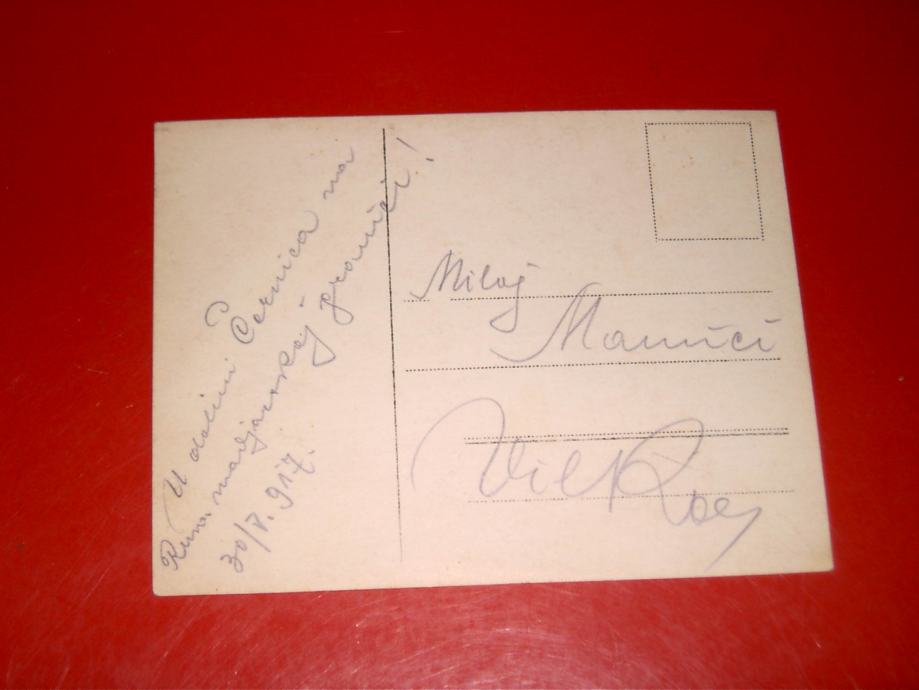 U dolini Černica na
Rum. madjarskoj granici!
30/V. 917.
Miloj
Mamici
Vilko